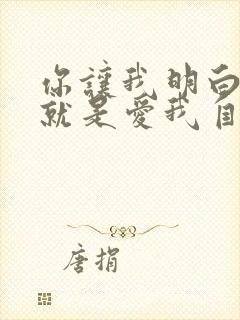 你讓我明白
就是愛我
唐捐